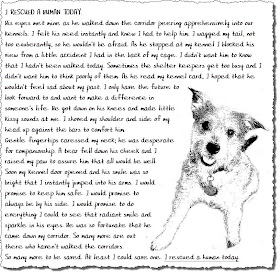 I RESCUED A HUMAN TODAY
His eyes met mine as he walked down the corridor peering apprehensively into our
kennels. I felt his need instantly and knew I had to help him. I wagged my tail, not
too exuberantly, so he wouldn't be afraid. As he stopped at my kennel I blocked his
view from a little accident I had in the back of my cage. I didn't want him to know
that I hadn't been walked today. Sometimes the shelter keepers get too busy and I
didn't want him to think poorly of them. As he read my kennel card, I hoped that he
wouldn't feel sad about my past. I only have the future to
look forward to and want to make a difference in
someone's life. He got down on his knees and made little
kissy sounds at me. I shoved my shoulder and side of my
head up against the bars to comfort him.
Gentle fingertips caressed my neck; he was desperate
for companionship. A tear fell down his cheek and I
raised my paw to assure him that all would be well.
Soon my kennel door opened and his smile was so
bright that I instantly jumped into his arms. I would
promise to keep him safe. I would promise to
always be by his side. I would promise to do
everything I could to see that radiant smile and
sparkle in his eyes. He was so fortunate that he
came down my corridor. So many more are out
there who haven't walked the corridors.
So many more to be saved. At least I could save one. I rescued a human today.